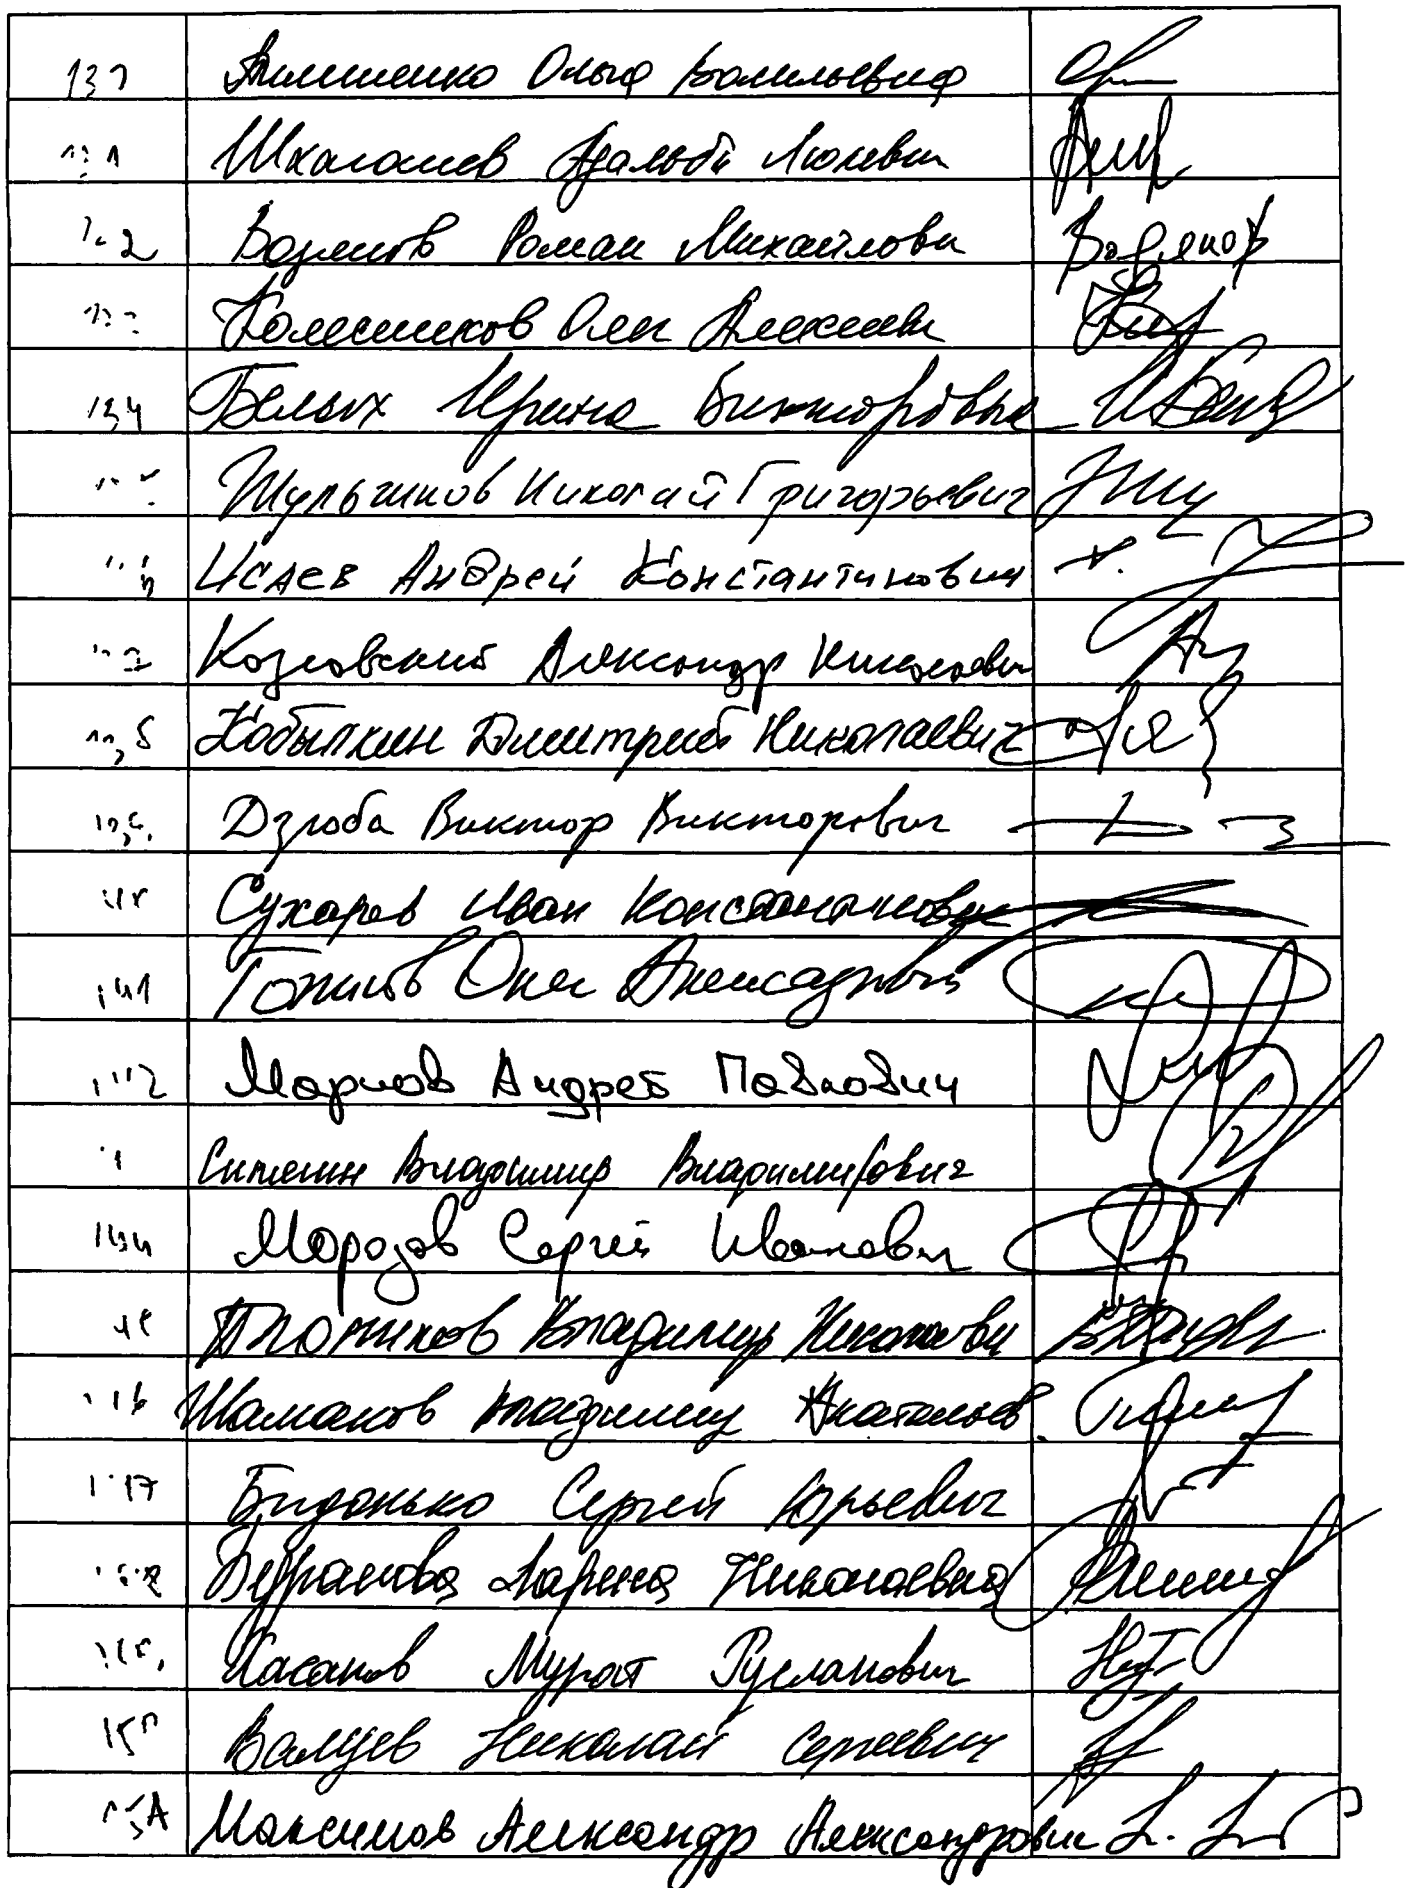 130 Тимченко Ольга Васильевна
131 Шхагошев Адальби Люлевич
132 Водянов Роман Михайлович Водянов
133 Колесников Олег Алексеевич
134 Белых Ирина Викторовна
Шульгинов Николай Григорьевич
Исаев Андрей Константинович
Козловский Александр Николаевич
Кобылкин Дмитрий Николаевич
Дзюба Виктор Викторович
Сухарев Иван Константинович
141 Голиков Олег Александрович
142 Марков Андрей Павлович
Ситенин Владимир Владимирович
144 Морозов Сергей Иванович
Плотников Владимир Николаевич
146 Шаманов Владимир Анатольев.
147 Бидонько Сергей Юрьевич
Буранова Лариса Николаевна
Хасанов Мурат Русланович
150 Валуев Николай Сергеевич
Максимов Александр Александрович